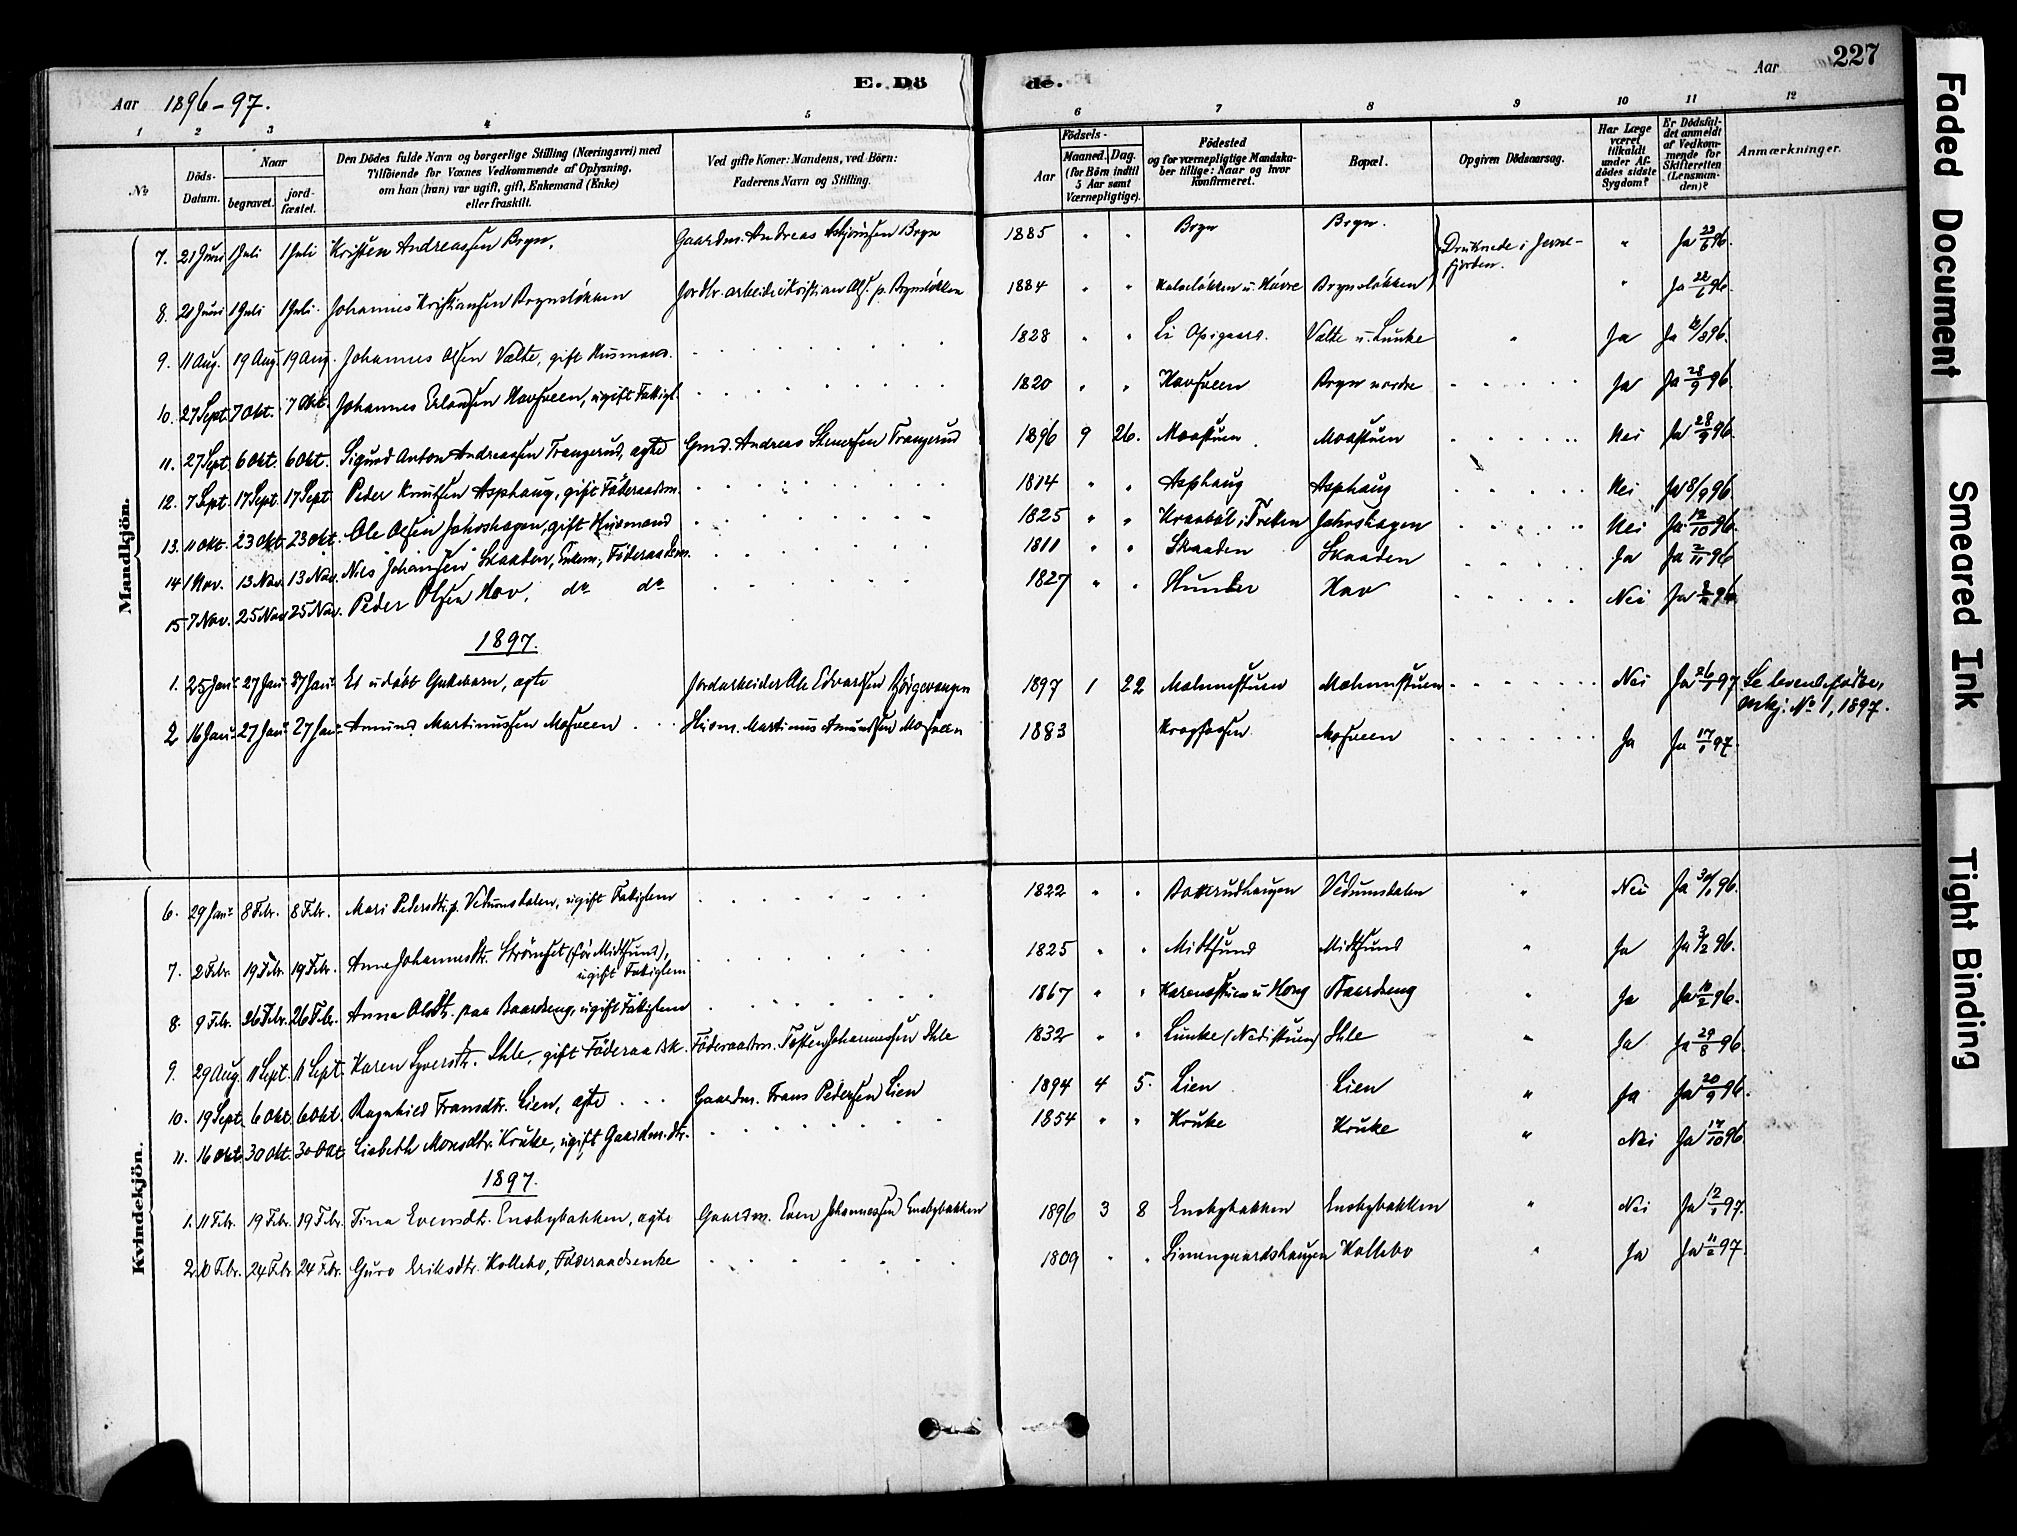 227
Aar 1896-97.
E. Dö de.
Aar
1 2 3 4 5 6 7 8 9 10 11 12
No
Döds-Datum.
Naar
begravet.
jord-fæstet.
Den Dödes fulde Navn og borgerlige Stilling (Næringsvei) med
Tilföiende for Voxnes Vedkommende af Oplysning,
om han (hun) var ugift, gift, Enkemand (Enke)
eller fraskilt.
Ved gifte Koner: Mandens, ved Börn:
Faderens Navn og Stilling.
Födsels-
Aar
Maaned. Dag.
(for Börn indtil
5 Aar samt
Værnepligtige).
Födested
og for værnepligtige Mandska-
ber tillige: Naar og hvor
konfirmeret.
Bopæl.
Opgiven Dödsaarsag.
Har Læge
været
tilkaldt
under Af-
dödes sidste
Sygdom?
Er Dödsfal-
det anmeldt
af Vedkom-
mende for
Skifteretten
(Lensman-
den)?
Anmærkninger.
Mandkjön.
7. 21 Juni 1 Juli 1 Juli Kristen Andreassen Bryn, Gaardm. Andreas Bryn 1885 " " Bryn Bryn. Druknede i " Ja 23/6 96.
fjorden.
8. 21 Juni 1 Juli 1 Juli. Johannes Kristiansen Brynsløkken Jordbr. arbeider Kristian Ols. p. Brynsløkken 1884 " " u. Høvre Brynsløkken " Ja 22/6 96.
9. 11 Aug. 19 Aug. 19 Aug. Johannes Olsen Valte, gift Husmand. 1828 " " Li Opigaard. Valte u. Lunke " Ja Ja /8 96.
10. 27 Sept. 7 Okt. 7 Okt. Johannes Erlandsen Hovsveen, ugift Fattigl. 1820 " " Hovsveen Bryn nordre Ja Ja 28/9 96
11. 27 Sept. 6 Okt. 6 Okt. Sigurd Anton Andreassen Trangerud, ægte Gmd. Andreas Stenersen Trangerud 1896 9 26. Moastuen Moastuen Nei Ja 28/9 96.
12. 7 Sept. 17 Sept. 17 Sept. Peder Knutsen Asphaug, gift Föderaadsm. 1814 " " Asphaug Asphaug Nei Ja 8/9 96
13. 11 Okt. 23 Okt. 23 Okt. Ole Olsen Jahrshagen, gift Husmand 1825 " " Kraabøl i Fretten Jahrshagen Nei Ja 12/10 96.
14 1 Nov. 13 Nov. 13 Nov. Nils Johansen Skaaden, Enkem., Föderaadsm. 1811 " " Skaaden Skaaden Ja Ja 2/11 96
15 7 Nov. 25 Nov. 25 Nov. Peder Olsen Hov, do do 1827 " " Hunder Hov Nei Ja 96
1897.
1. 25 Janr. 27 Janr. 27 Janr. Et udøbt Gutebarn, ægte Jordarbeider Ole Edvardsen 1897 1 22 Malmestuen Malmestuen Nei Ja 26/1 97. Se levendefødte,
mkj. No 1, 1897.
2 16 Janr. 27 Janr. 27 Janr. Amund Martinussen Mosveen Husm. Martinus Amundsen Mosveen 1883 Mosveen Ja Ja 17/1 97.
Kvindekjön.
6. 29 Janr. 8 Febr. 8 Febr. Mari Pedersdtr. p. Vedumsdalen, ugift Fattiglem 1822 " " Vedumsdalen " Nei Ja 30/1 96.
7. 2 Febr. 19 Febr. 19 Febr. Anne Johannesdtr. Strømset (før Midtsund), 1825 " " Midtsund Midtsund " Ja Ja 3/2 96.
ugift Fattiglem
8. 9 Febr. 26 Febr. 26 Febr. Anna Olsdtr. paa Baardseng, ugift Fattiglem 1867 " " Karenastuen u Hong Baardseng " Ja Ja 10/2 96.
9. 29 Aug. 11 Sept. 11 Sept. Karen Syversdtr. Ihle, gift Föderaadsk. Föderaadsm. Tosten Johannessen Ihle 1832 " " Lunke (Nedistuen) Ihle " Ja Ja 29/8 96.
10. 19 Sept. 6 Okt. 6 Okt. Ragnhild Fransdtr. Lien, ægte Gaardm. Frans Pedersen Lien 1894 4 5. Lien Lien " Ja Ja 20/9 96.
11. 16 Okt. 30 Okt. 30 Okt. Lisbeth Monsdtr. Kruke, ugift Gaardm.dtr. 1854 " " Kruke Kruke " Nei Ja 17/10 96
1897.
1. 11 Febr. 19 Febr. 19 Febr. Tina Evensdtr. Enebybakken, ægte Gaardm. Even Johannessen Enebybakken 1896 3 8 Enebybakken Enebybakken " Nei Ja 97.
2. 10 Febr. 24 Febr. 24 Febr. Guro Eriksdtr. Kollebo, Föderaadsenke 1809 " " Simengaardshaugen Kollebo " Ja Ja 97.
Faded Document
Smeared Ink
Tight Binding